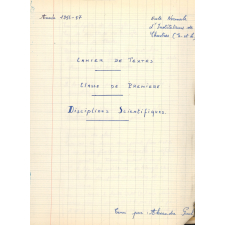 Année 1956-57
Ecole Normale
d'Instituteurs de
Chartres (E. et L)
CAHIER DE TEXTES
CLASSE DE PREMIÈRE
DISCIPLINES SCIENTIFIQUES.
Tenu par : Alexandre